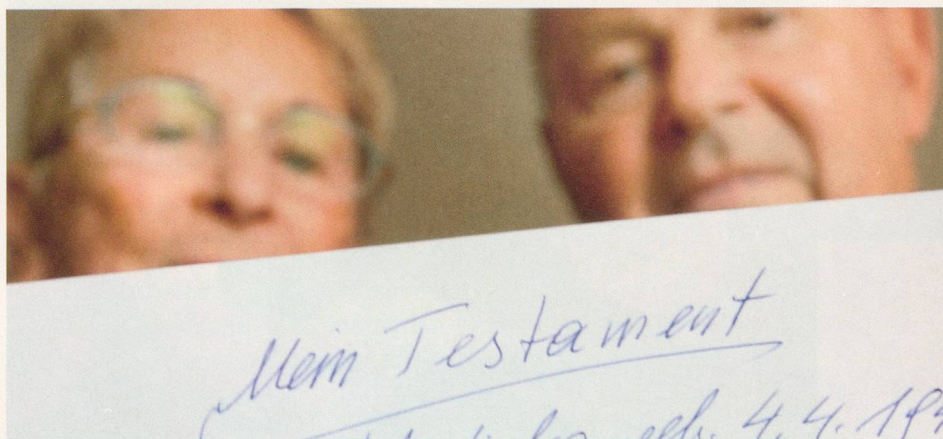 Mein Testament
geb. 4.4.19